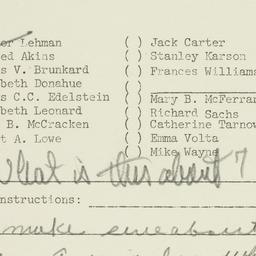 or Lehman ( ) Jack Carter
ed Akins ( ) Stanley Karson
s V. Brunkard ( ) Frances Williams
beth Donahue ( )
s C.C. Edelstein ( ) Mary B. McFerran
beth Leonard ( ) Richard Sachs
B. McCracken ( ) Catherine Tarnow
t A. Lowe ( ) Emma Volta
( ) Mike Wayne
What is this about?
nstructions:
make sure about